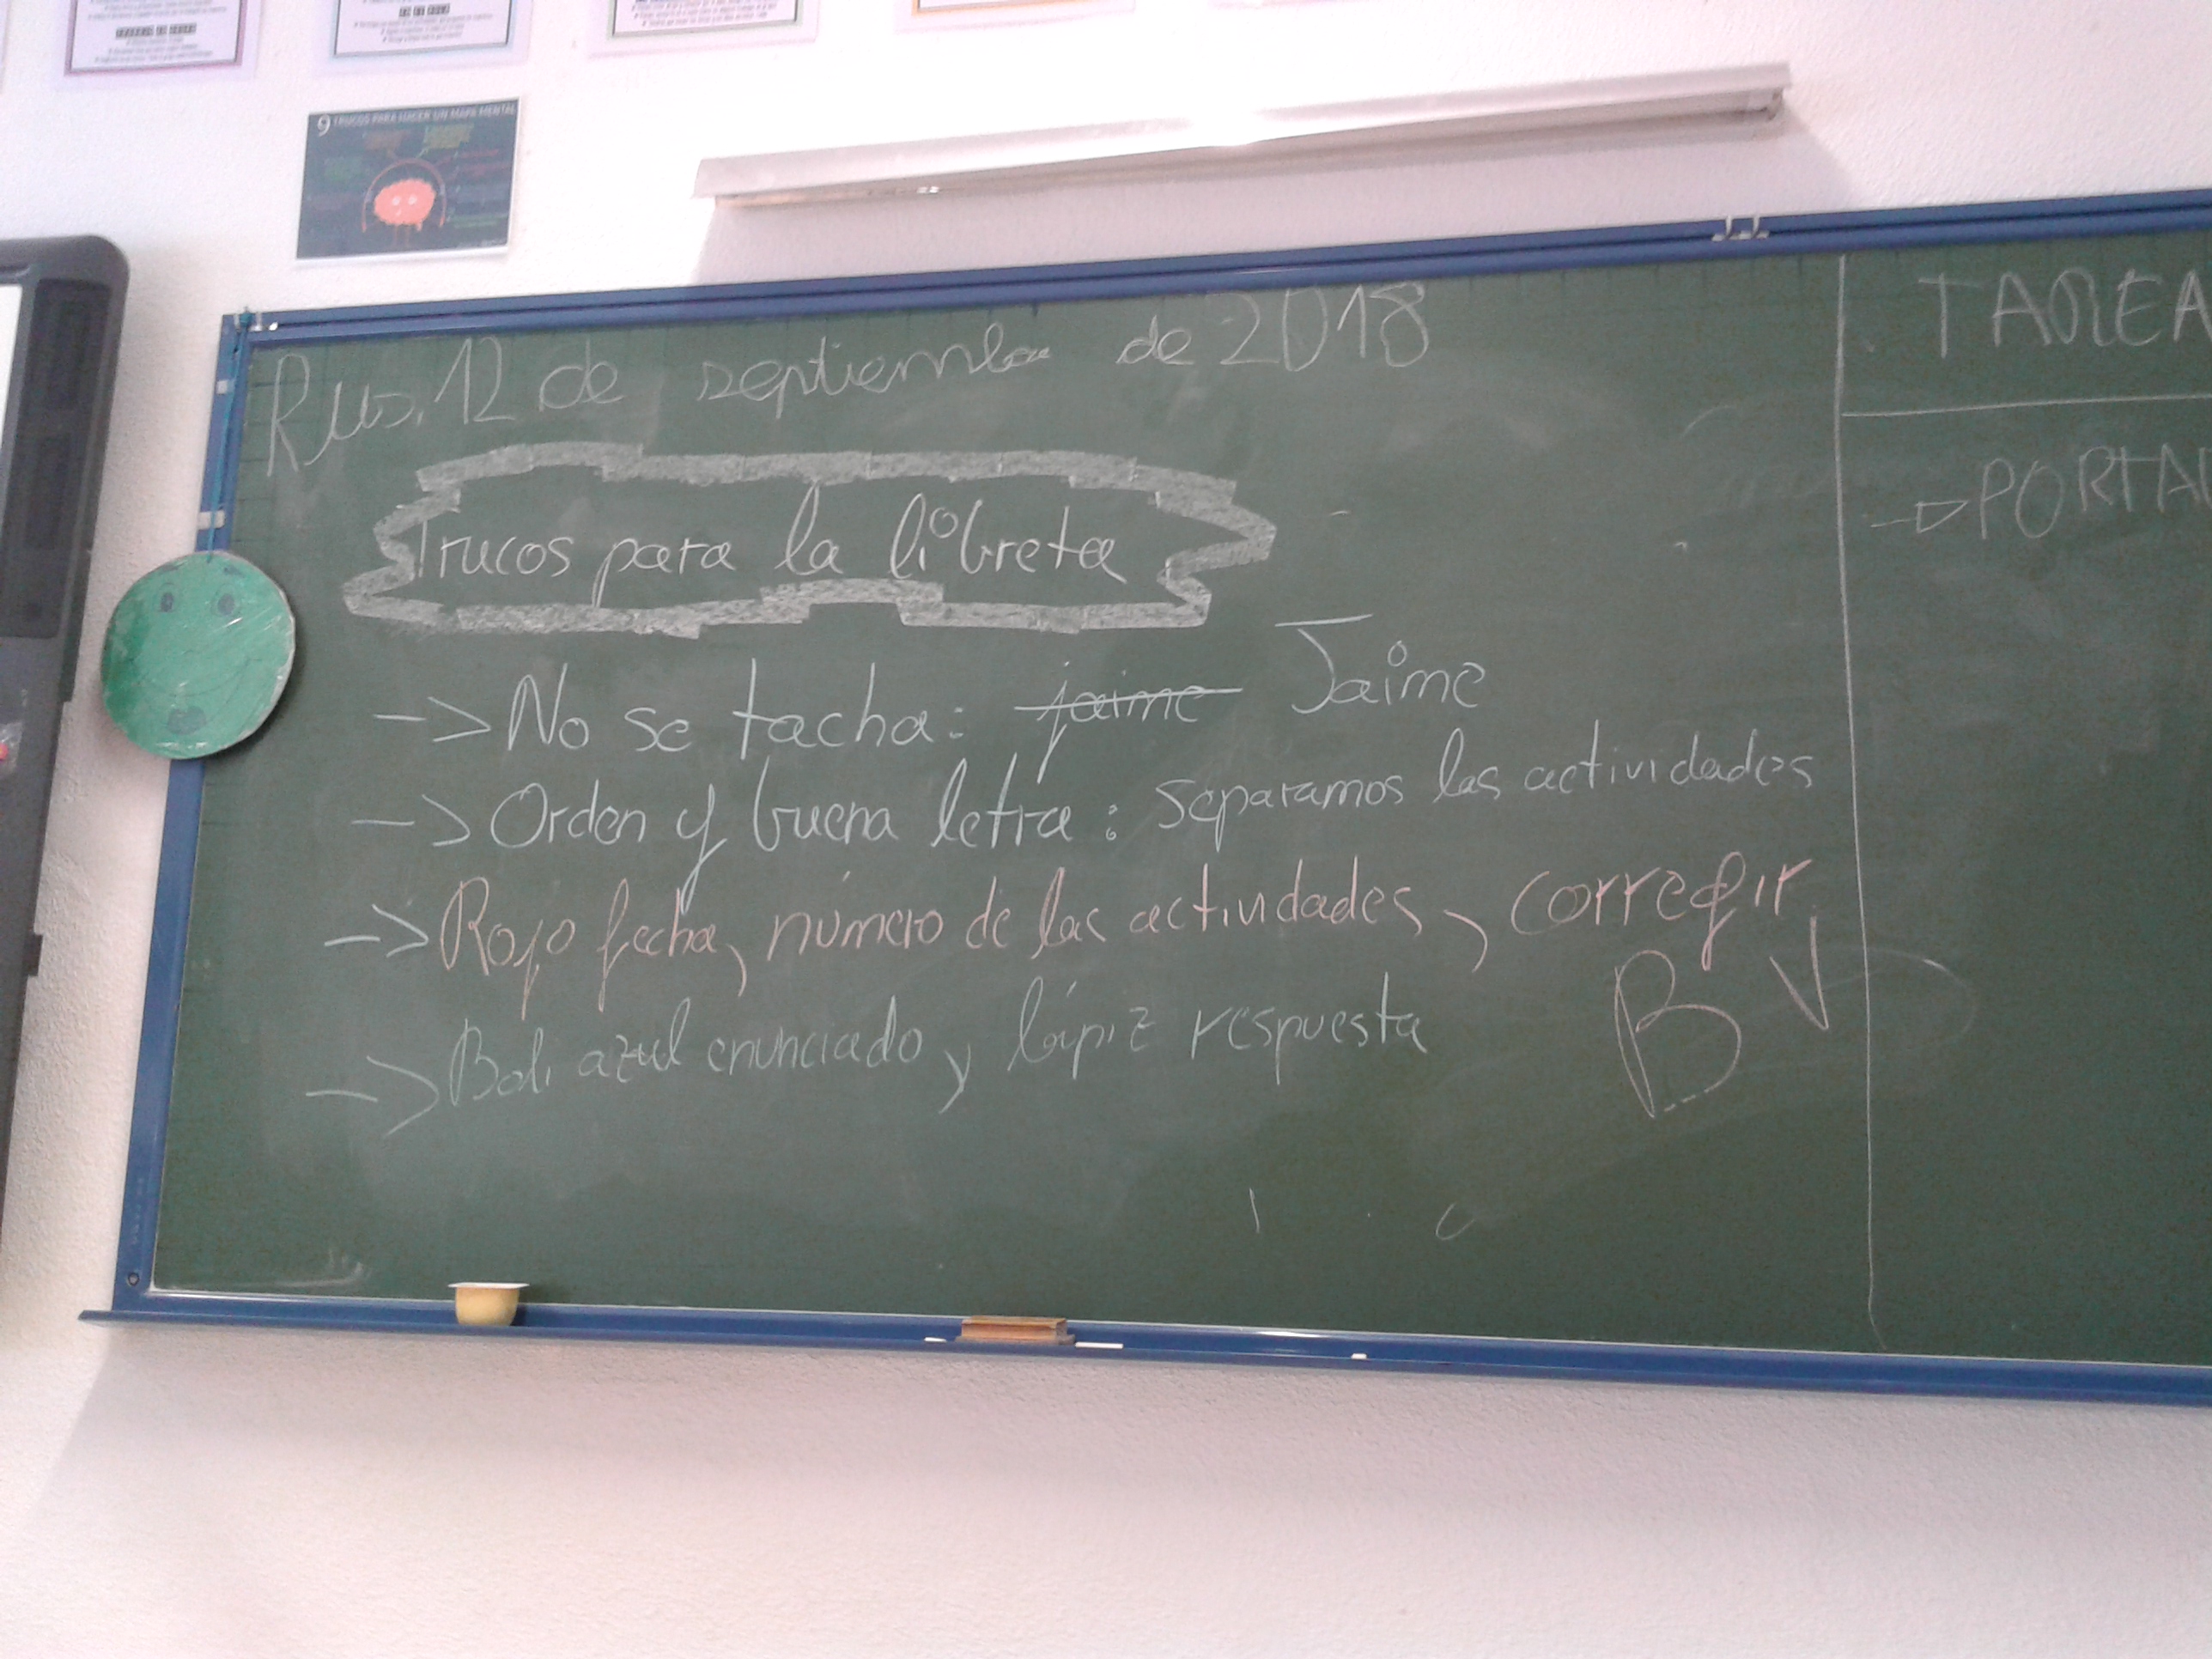 9 TRUCOS PARA HACER UN MAPA MENTAL
Rus, 12 de septiembre de 2018
Trucos para la libreta
-> No se tacha: jaime Jaime
-> Orden y buena letra: separamos las actividades
-> Rojo fecha, número de las actividades, corregir
B V
-> Boli azul enunciado y lápiz respuesta
TAREA
-> PORTA